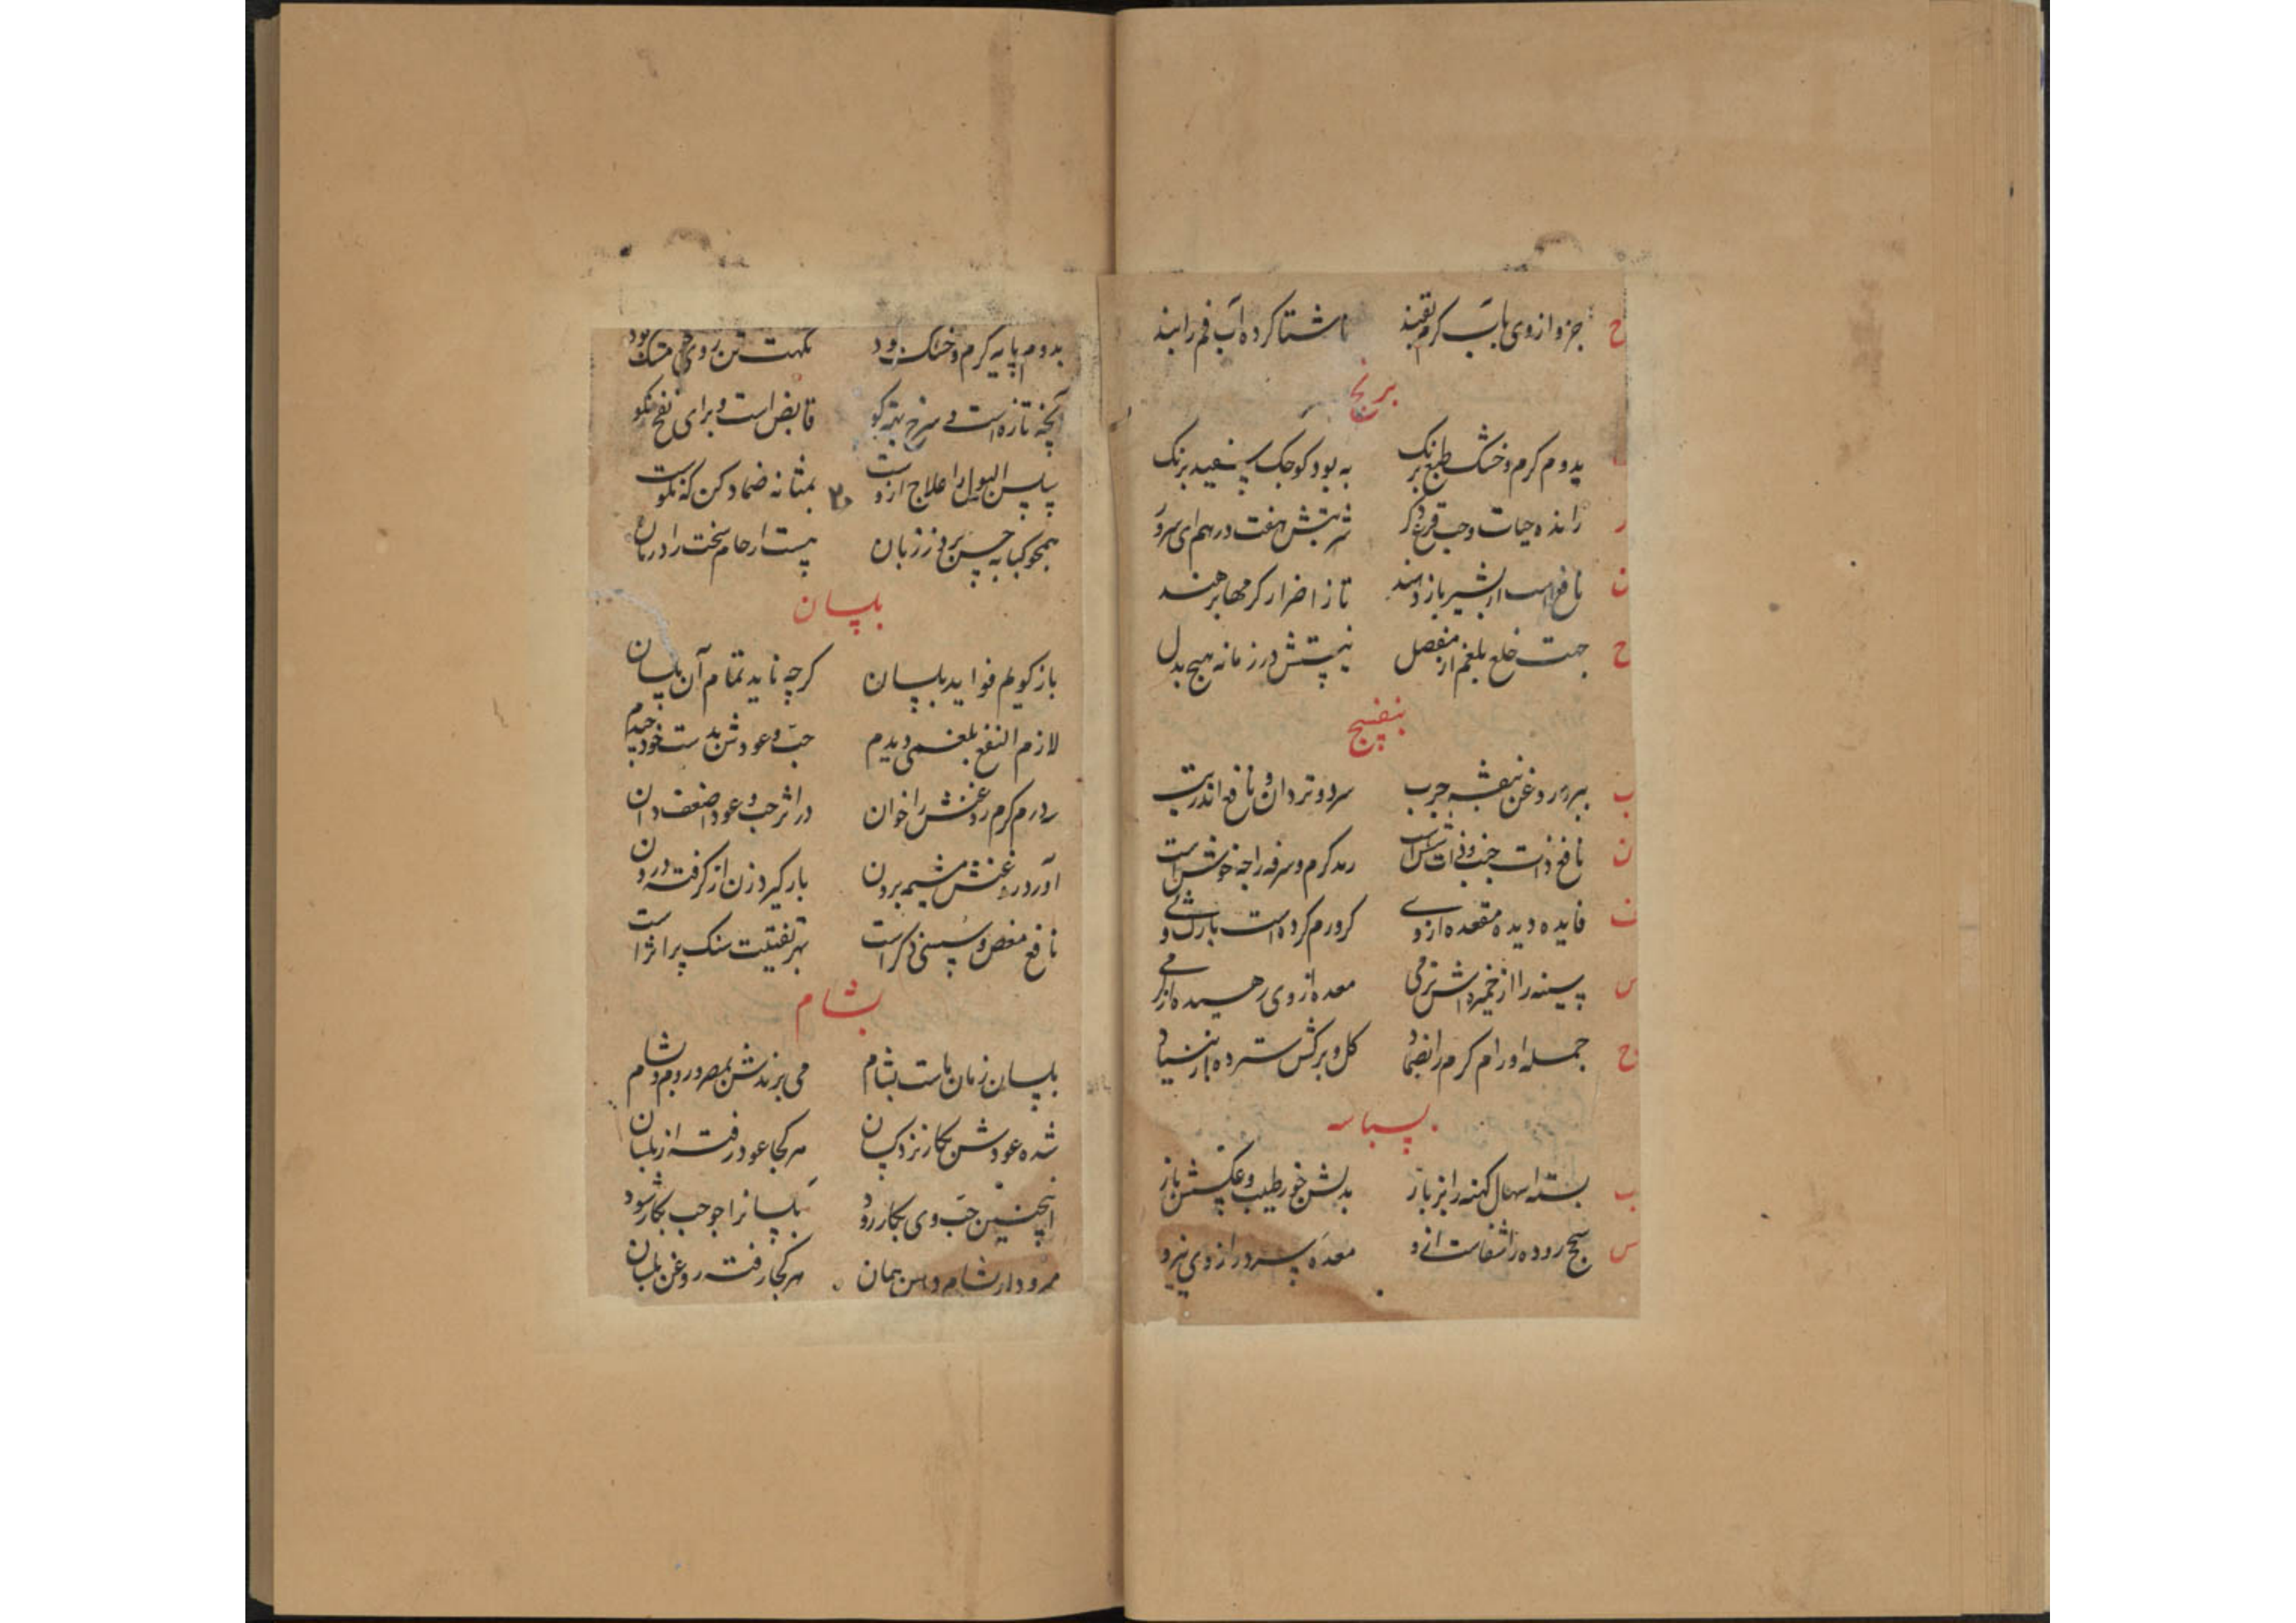 ح جزو از وی باب کرم تقیند ناشتا کرده آب فم را بند
برنج
بدوم کرم و خشک طبع برنک به بود کوچک سفید برنک
ر رانده حیات و حب قرع دکر شربتش هفت درهم ای سرور
ن نافع است ار بشیر باز دهند تا ز اضرار کرمها برهند
ح جهت خلع بلغم از مفصل نیستش در زمانه هیچ بدل
بنفسج
ب روغن بنفشه چرب سرد و تر دان و نافع اندر
ن نافع ذات جنب و ذات رمد کرم و سرفه را چه خوش است
ف فایده دیده مقعده از وی کر ورم کرده است یا رک و پی
س سینه را از خمیر داش نرمی معده از وی رهیده از کرمی
ح جمله اورام کرم را بضماد کل و برکش سترده از بنیاد
بسباسه
ب بسته اسهال کهنه را بز باز بدلش خور طیب و عکسش باز
س سحج روده را شفاست ازو معده سرد را از وی نیرو
بدوم پایه کرم و خشک بود نکهت تن ز وی چو مشک بود
آنچه تازه است و سرخ بهتر کو قابض است و برای نفخ نکو
سلس البول را علاج ازوست بمثانه ضماد کن که نکوست
همچو کبابه حس برد ز زبان هست ارحام سخت را درمان
بلسان
باز کویم فواید بلسان کرچه ناید تمام آن بلسان
لازم النفع بلغمی دیدم حب و عودش بدست خود چیدم
کرم روغنش را خوان در اثر حب و عود اضعف دان
آورد روغنش مشیمه برون بار کیرد زن ار کرفته درون
نافع مغص و سستی ذکر است بهر تفتیت سنک پر اثر است
بشام
بلسان زمان ماست بشام می برندش بمصر و روم و شام
شده عودش بکار نزد کسان هر کجا عود رفته از بلسان
اینچنین حب وی بکار رود بلسانرا چو حب بکار شود
همان هر کجا رفته روغن بلسان